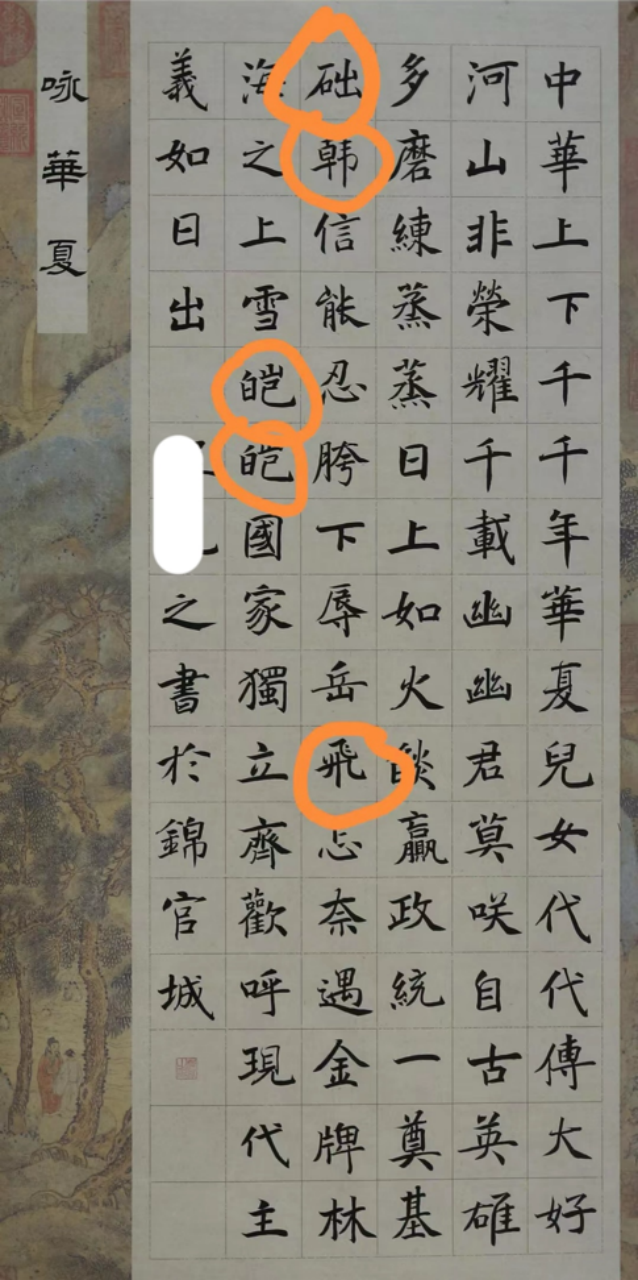 咏華夏
中華上下千千年華夏兒女代代傳大好
河山非榮耀千載幽幽君莫咲自古英雄
多磨練蒸蒸日上如火燄贏政統一奠基
础韩信能忍胯下辱岳飛忘奈遇金牌林
海之上雪皑皑國家獨立齊歡呼現代主
義如日出
之書於錦官城